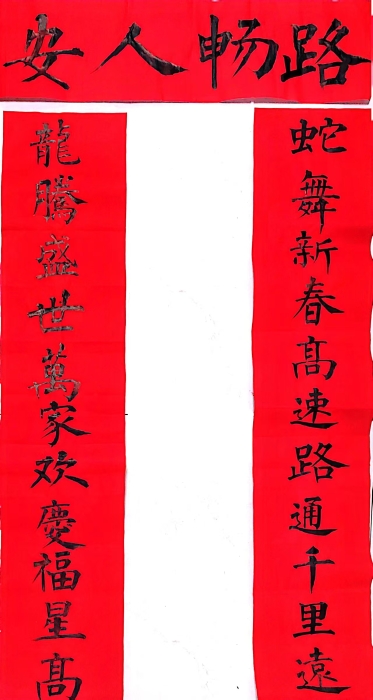 路畅人安
蛇舞新春高速路通千里遠
龍騰盛世萬家欢慶福星高